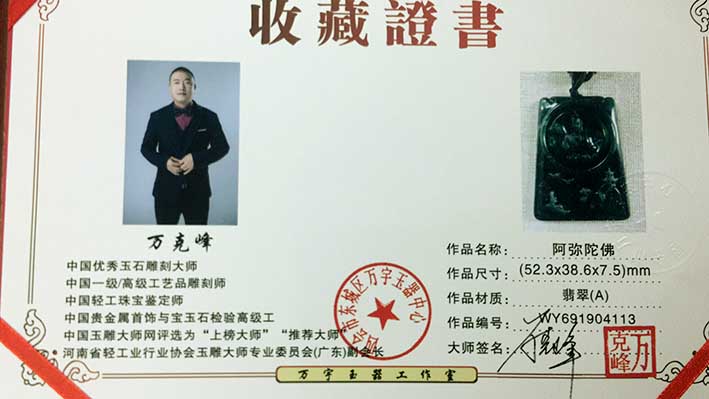 收藏證書
万克峰
中国优秀玉石雕刻大师
中国一级/高级工艺品雕刻师
中国轻工珠宝鉴定师
中国贵金属首饰与宝玉石检验高级工
中国玉雕大师网评选为“上榜大师”“推荐大师”
河南省轻工业行业协会玉雕大师专业委员会(广东)副会长
四会市东城区万宇玉器中心
作品名称: 阿弥陀佛
作品尺寸: (52.3x38.6x7.5)mm
作品材质: 翡翠(A)
作品编号: WY691904113
大师签名:
万克峰
万宇玉器工作室